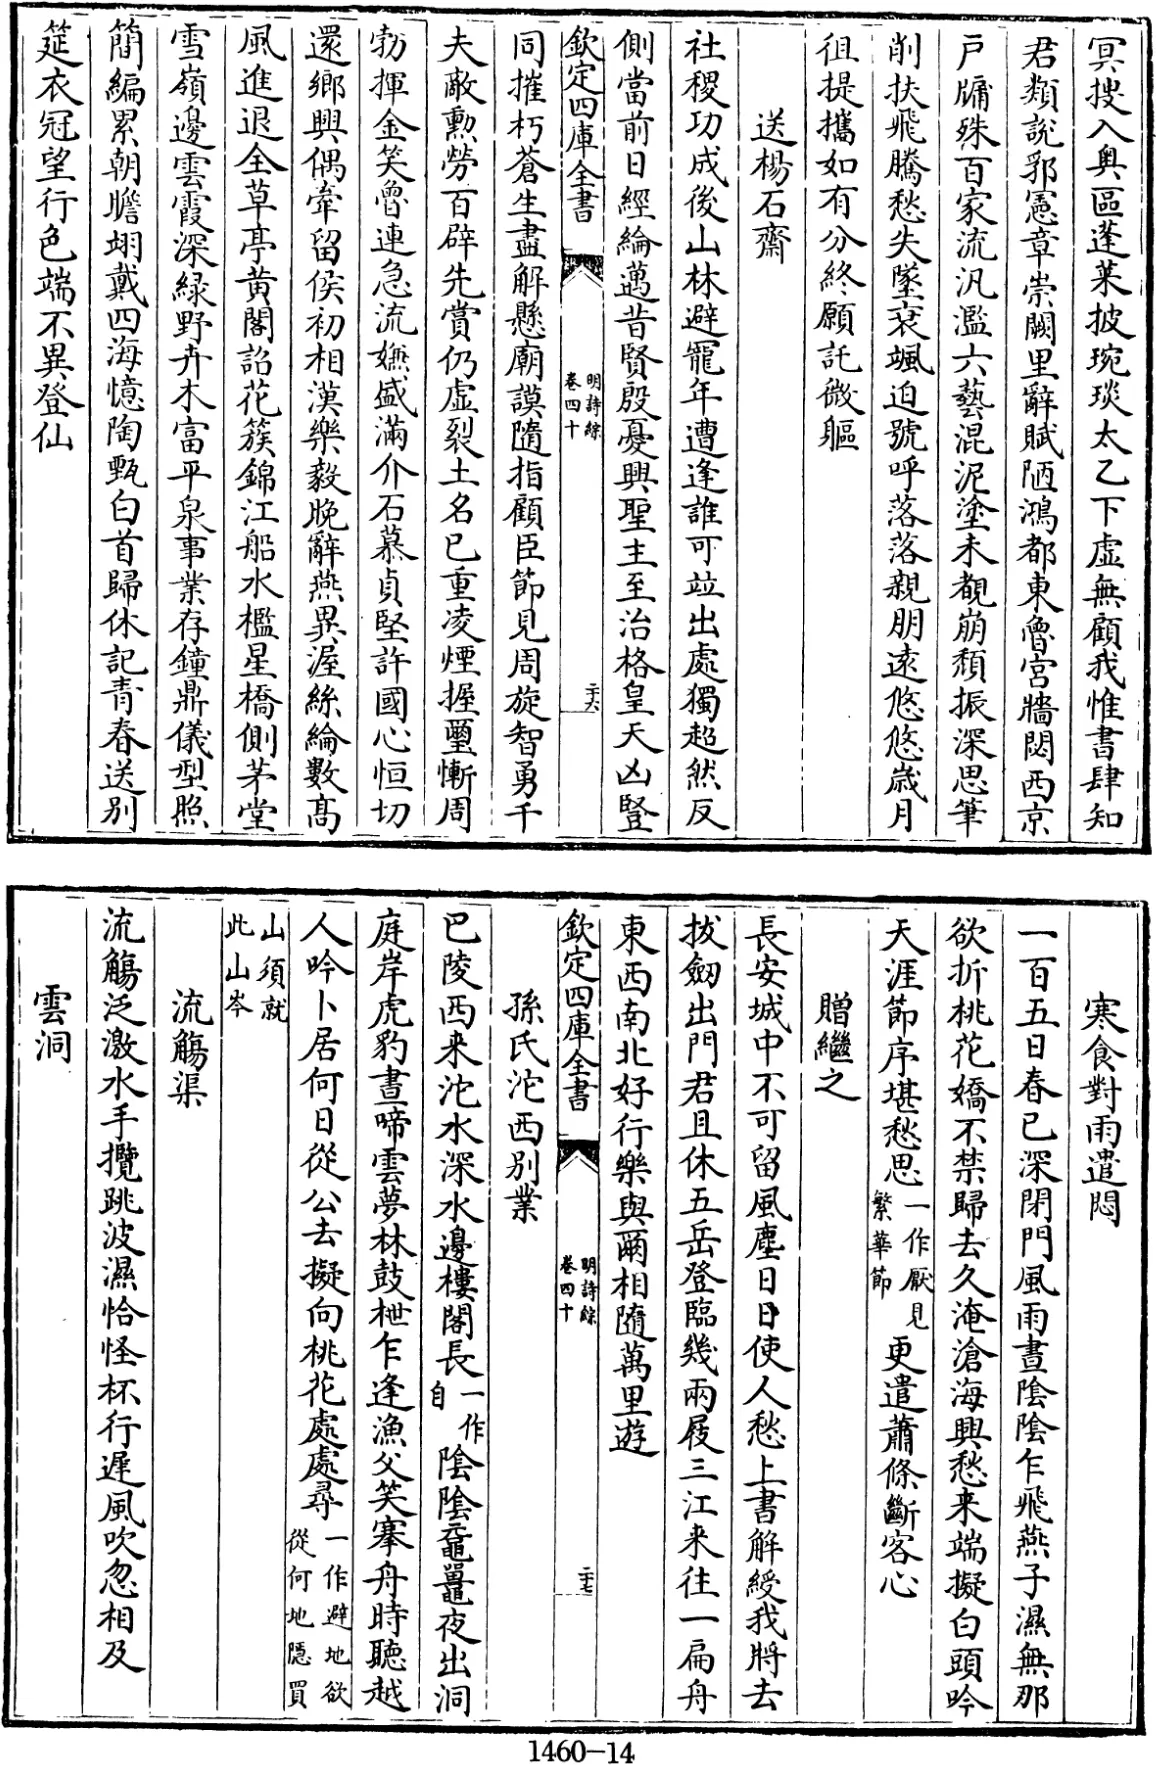 冥搜入奥區蓬萊披琬琰太乙下虚無顧我惟書肆知
君類説郛憲章崇闕里辭賦陋鴻都東魯宮牆閟西京
戸牖殊百家流汎濫六藝混泥塗未覩崩頽振深思筆
削扶飛騰愁失墜衰颯迫號呼落落親朋遠悠悠歳月
徂提攜如有分終願託微軀
送楊石齋
社稷功成後山林避寵年遭逢誰可竝出處獨超然反
側當前日經綸邁昔賢殷憂興聖主至治格皇天凶豎
欽定四庫全書
明詩綜
卷四十
二十六
同摧朽蒼生盡解懸廟謨隨指顧臣節見周旋智勇千
夫敵勲勞百辟先賞仍虚裂土名已重凌煙握璽慚周
勃揮金笑魯連急流嫌盛滿介石慕貞堅許國心恒切
還鄉興偶牽留侯初相漢樂毅晚辭燕異渥絲綸數髙
風進退全草亭黄閣詔花簇錦江船水檻星橋側茅堂
雪嶺邊雲霞深緑野卉木富平泉事業存鐘鼎儀型照
簡編累朝瞻翊戴四海憶陶甄白首歸休記青春送别
筵衣冠望行色端不異登仙
寒食對雨遣悶
一百五日春已深閉門風雨晝陰陰乍飛燕子濕無那
欲折桃花嬌不禁歸去久淹滄海興愁来端擬白頭吟
天涯節序堪愁思一作厭見繁華節更遣蕭條斷客心
贈繼之
長安城中不可留風塵日日使人愁上書解綬我將去
拔劒出門君且休五岳登臨幾兩屐三江来往一扁舟
東西南北好行樂與爾相隨萬里遊
欽定四庫全書
明詩綜
卷四十
二十七
孫氏沱西别業
巴陵西来沱水深水邊樓閣長一作自陰陰黿鼉夜出洞
庭岸虎豹晝啼雲夢林鼓枻乍逢漁父笑搴舟時聽越
人吟卜居何日從公去擬向桃花處處尋一作避地欲從何地隱買
山須就此山岑
流觴渠
流觴泛激水手攬跳波濕恰怪杯行遲風吹忽相及
雲洞
1460-14